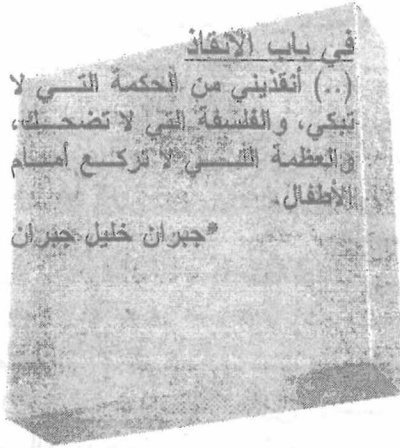 في باب الانقاذ
(..) أنقذيني من الحكمة التي لا
تبكي، والفلسفة التي لا تضحك،
والعظمة التي لا تركع أمام
الأطفال.
*جبران خليل جبران